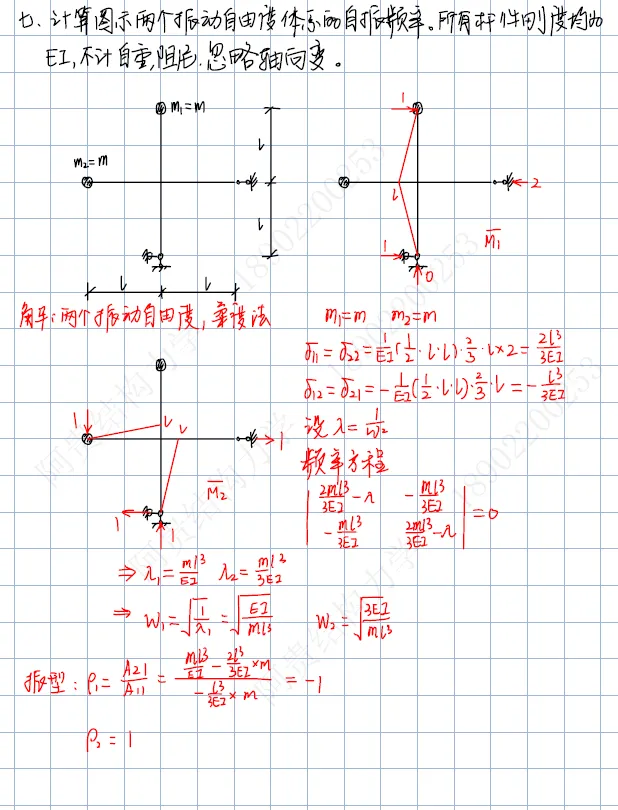 七、计算图示两个振动自由度体系的自振频率。所有杆件刚度均为
EI,不计自重,阻尼.忽略轴向变。
m₁=m
m₂=m
l
l
l
l
1
l
2
1
0
M̅₁
解:两个振动自由度,柔度法
m₁=m m₂=m
δ₁₁=δ₂₂=1/EI(1/2·l·l)·2/3·l×2=2l³/3EI
δ₁₂=δ₂₁=-1/EI(1/2·l·l)·2/3·l=-l³/3EI
设λ=1/ω²
频率方程
|2ml³/3EI-λ -ml³/3EI|
|-ml³/3EI 2ml³/3EI-λ|=0
1
l
l
1
M̅₂
1
1
⇒λ₁=ml³/EI λ₂=ml³/3EI
⇒W₁=√(1/λ₁)=√(EI/ml³) W₂=√(3EI/ml³)
振型:ρ₁=A21/A11=(ml³/EI-2l³/3EI×m)/(-l³/3EI×m)=-1
ρ₂=1
阿超结构力学 18902200253